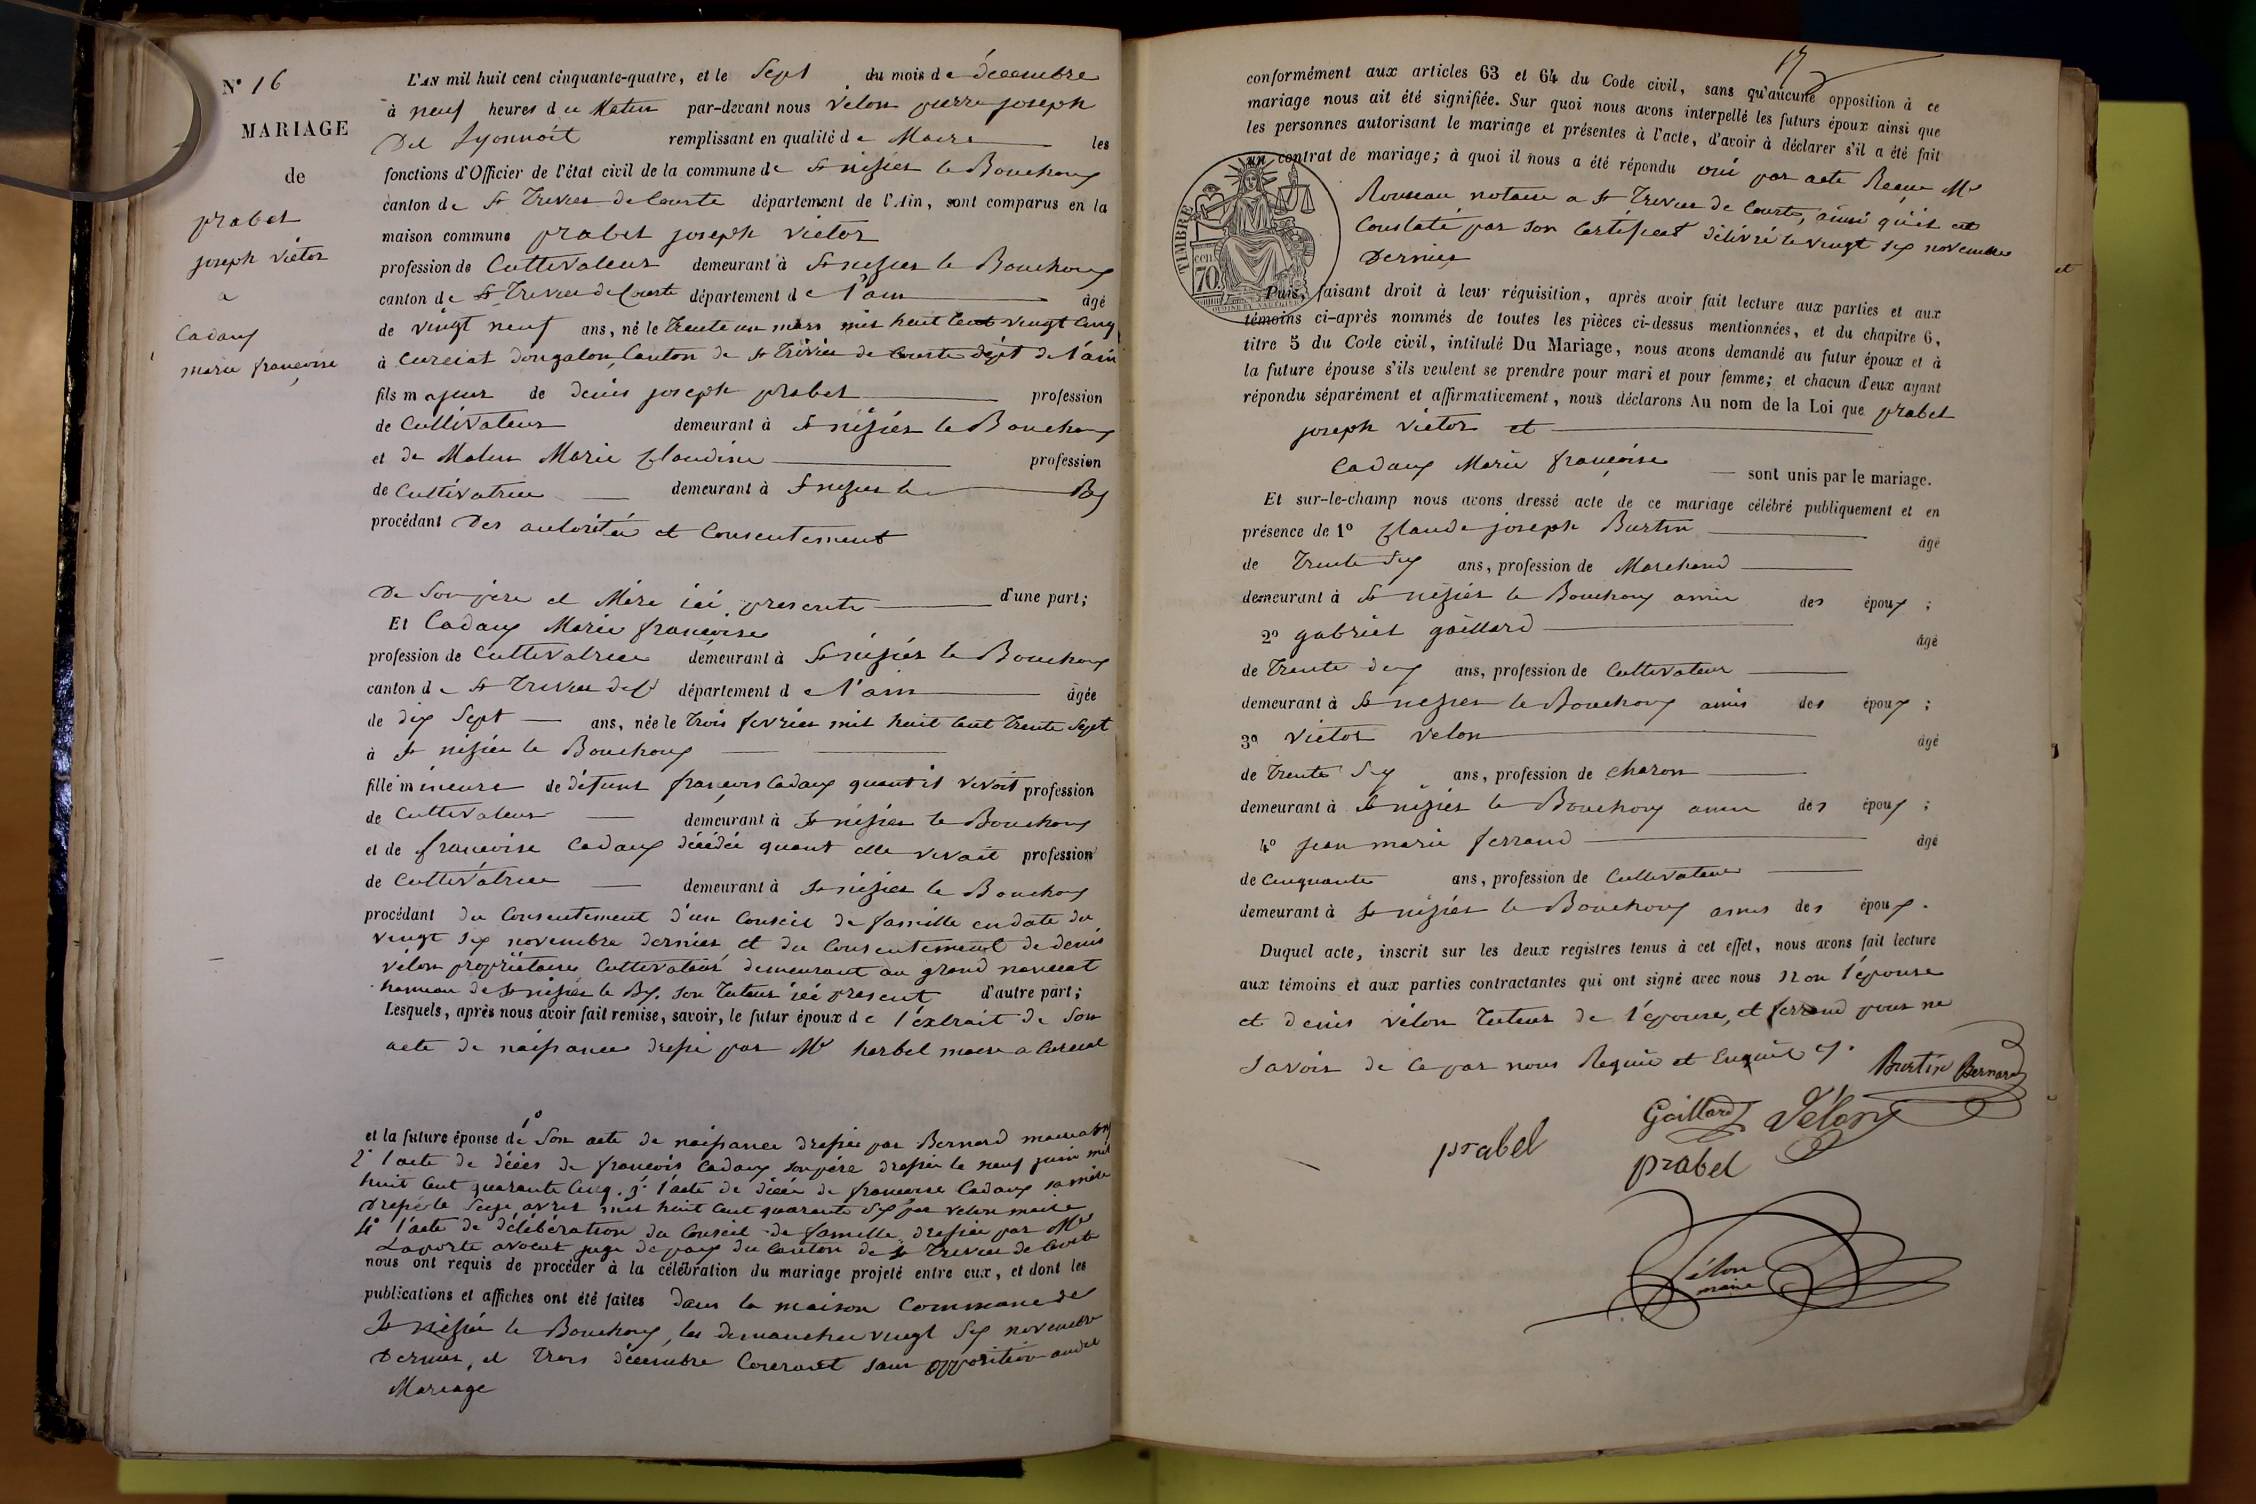 N° 16
MARIAGE
de
prabel
joseph victor
a
Cadoux
marie françoise
L'AN mil huit cent cinquante-quatre, et le Sept du mois de décembre
à neuf heures du Matin par-devant nous Velon pierre joseph
remplissant en qualité de Maire les
fonctions d'Officier de l'état civil de la commune de St nizier le Bouchoux
canton de St Trivier de Courte département de l'Ain, sont comparus en la
maison commune prabel joseph victor
profession de Cultivateur demeurant à St nizier le Bouchoux
canton de St Trivier de Courte département de l'ain âgé
de vingt neuf ans, né le trente un mars mil huit Cent vingt Cinq
à Curciat dongalon Canton de St Trivier de Courte dépt de l'ain
fils majeur de denis joseph prabel profession
de Cultivateur demeurant à St nizier le Bouchoux
et de Marie Claudine profession
de Cultivatrice demeurant à St nizier le Bx
procédant Des autorités et Consentement
De Son père et Mère ici présents d'une part;
Et Cadoux Marie françoise
profession de Cultivatrice demeurant à St nizier le Bouchoux
canton de St Trivier de Cs département de l'ain âgée
de dix Sept ans, née le trois fevrier mil huit Cent trente Sept
à St nizier le Bouchoux
fille mineure de défunt françois Cadoux quant il vivoit profession
de Cultivateur demeurant à St nizier le Bouchoux
et de françoise Cadoux décédée quant elle vivait profession
de Cultivatrice demeurant à St nizier le Bouchoux
procédant du Consentement d'un Conseil de famille en date du
vingt Six novembre dernier et du Consentement de denis
vélon propriétaire Cultivateur demeurant au grand
hameau de St nizier le Bx. Son tuteur ici présent d'autre part;
Lesquels, après nous avoir fait remise, savoir, le futur époux de l'extrait de Son
acte de naissance dressé par Mr maire a Curciat
et la future épouse de 1° Son acte de naissance dressée par Bernard maire
2° l'acte de décès de françois Cadoux Son père dressée le neuf juin mil
huit Cent quarante Cinq. 3° l'acte de décès de françoise Cadoux sa mère
Dressé le Seize avril mil huit Cent quarante Six par velon maire
4° l'acte de délibération du Conseil de famille dressée par Mr
Laporte avocat juge de paix du Canton de St Trivier de Courte
nous ont requis de procéder à la célébration du mariage projeté entre eux, et dont les
publications et affiches ont été faites dans la maison Commune de
St nizier le Bouchoux, les dimanches vingt Six novembre
Dernier, et trois décembre Courant sans opposition audit
Mariage
17
conformément aux articles 63 et 64 du Code civil, sans qu'aucune opposition à ce
mariage nous ait été signifiée. Sur quoi nous avons interpellé les futurs époux ainsi que
les personnes autorisant le mariage et présentes à l'acte, d'avoir à déclarer s'il a été fait
un contrat de mariage; à quoi il nous a été répondu oui par acte Recue Mr
Rousseau notaire a St Trivier de Courte, ainsi qu'il est
Constaté par Son Certificat délivré le vingt Six novembre
Dernier
TIMBRE
cent
70
Puis, faisant droit à leur réquisition, après avoir fait lecture aux parties et aux
témoins ci-après nommés de toutes les pièces ci-dessus mentionnées, et du chapitre 6,
titre 5 du Code civil, intitulé Du Mariage, nous avons demandé au futur époux et à
la future épouse s'ils veulent se prendre pour mari et pour femme; et chacun d'eux ayant
répondu séparément et affirmativement, nous déclarons Au nom de la Loi que prabel
joseph victor et
Cadoux Marie françoise sont unis par le mariage.
Et sur-le-champ nous avons dressé acte de ce mariage célébré publiquement et en
présence de 1° Claude joseph Burtin âgé
de trente Six ans, profession de Marchand
demeurant à St nizier le Bouchoux amis des époux;
2° gabriel gaillard âgé
de trente deux ans, profession de Cultivateur
demeurant à St nizier le Bouchoux amis des époux;
3° Victor Velon âgé
de trente Six ans, profession de charon
demeurant à St nizier le Bouchoux amis des époux;
4° jean marie ferrand âgé
de Cinquante ans, profession de Cultivateur
demeurant à St nizier le Bouchoux amis des époux.
Duquel acte, inscrit sur les deux registres tenus à cet effet, nous avons fait lecture
aux témoins et aux parties contractantes qui ont signé avec nous non l'épouse
et denis vélon tuteur de l'épouse, et ferrand pour ne
Savoir de Ce par nous Requis et Enquis
Burtin Bernard
Gaillard Vélon
prabel
prabel
Vélon
maire